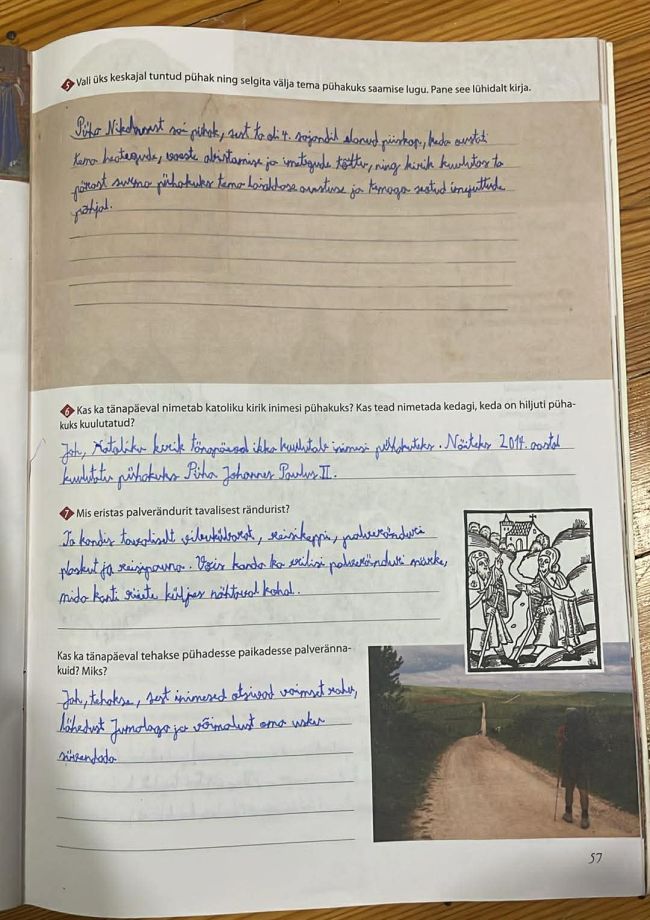 5 Vali üks keskajal tuntud pühak ning selgita välja tema pühakuks saamise lugu. Pane see lühidalt kirja.
Püha Nikolausest sai pühak, sest ta oli 4. sajandil elanud piiskop, keda austati
tema heategude, vaeste abistamise ja imetegude tõttu, ning kirik kuulutas ta
pärast surma pühakuks tema laialdase austuse ja temaga seotud imejuttude
põhjal.
6 Kas ka tänapäeval nimetab katoliku kirik inimesi pühakuks? Kas tead nimetada kedagi, keda on hiljuti püha-
kuks kuulutatud?
Jah, Katoliku kirik tänapäeval ikka kuulutab inimesi pühakuteks. Näiteks 2014. aastal
kuulutati pühakuks Püha Johannes Paulus II.
7 Mis eristas palverändurit tavalisest rändurist?
Ta kandis tavaliselt vilukübarat, reisikeppi, palveränduri
plaskut ja reisipauna. Võis kanda ka erilisi palveränduri märke,
mida kanti riiete küljes nähtaval kohal.
Kas ka tänapäeval tehakse pühadesse paikadesse palveränna-
kuid? Miks?
Jah, tehakse, sest inimesed otsivad vaimset rahu,
lähedust Jumalaga ja võimalust oma usku
süvendada
57